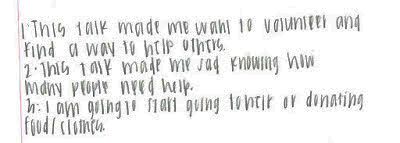 1. This talk made me want to volunteer and
find a way to help others.
2. This talk made me sad knowing how
many people need help.
h: I am going to start going to help or donating
food/clothes.